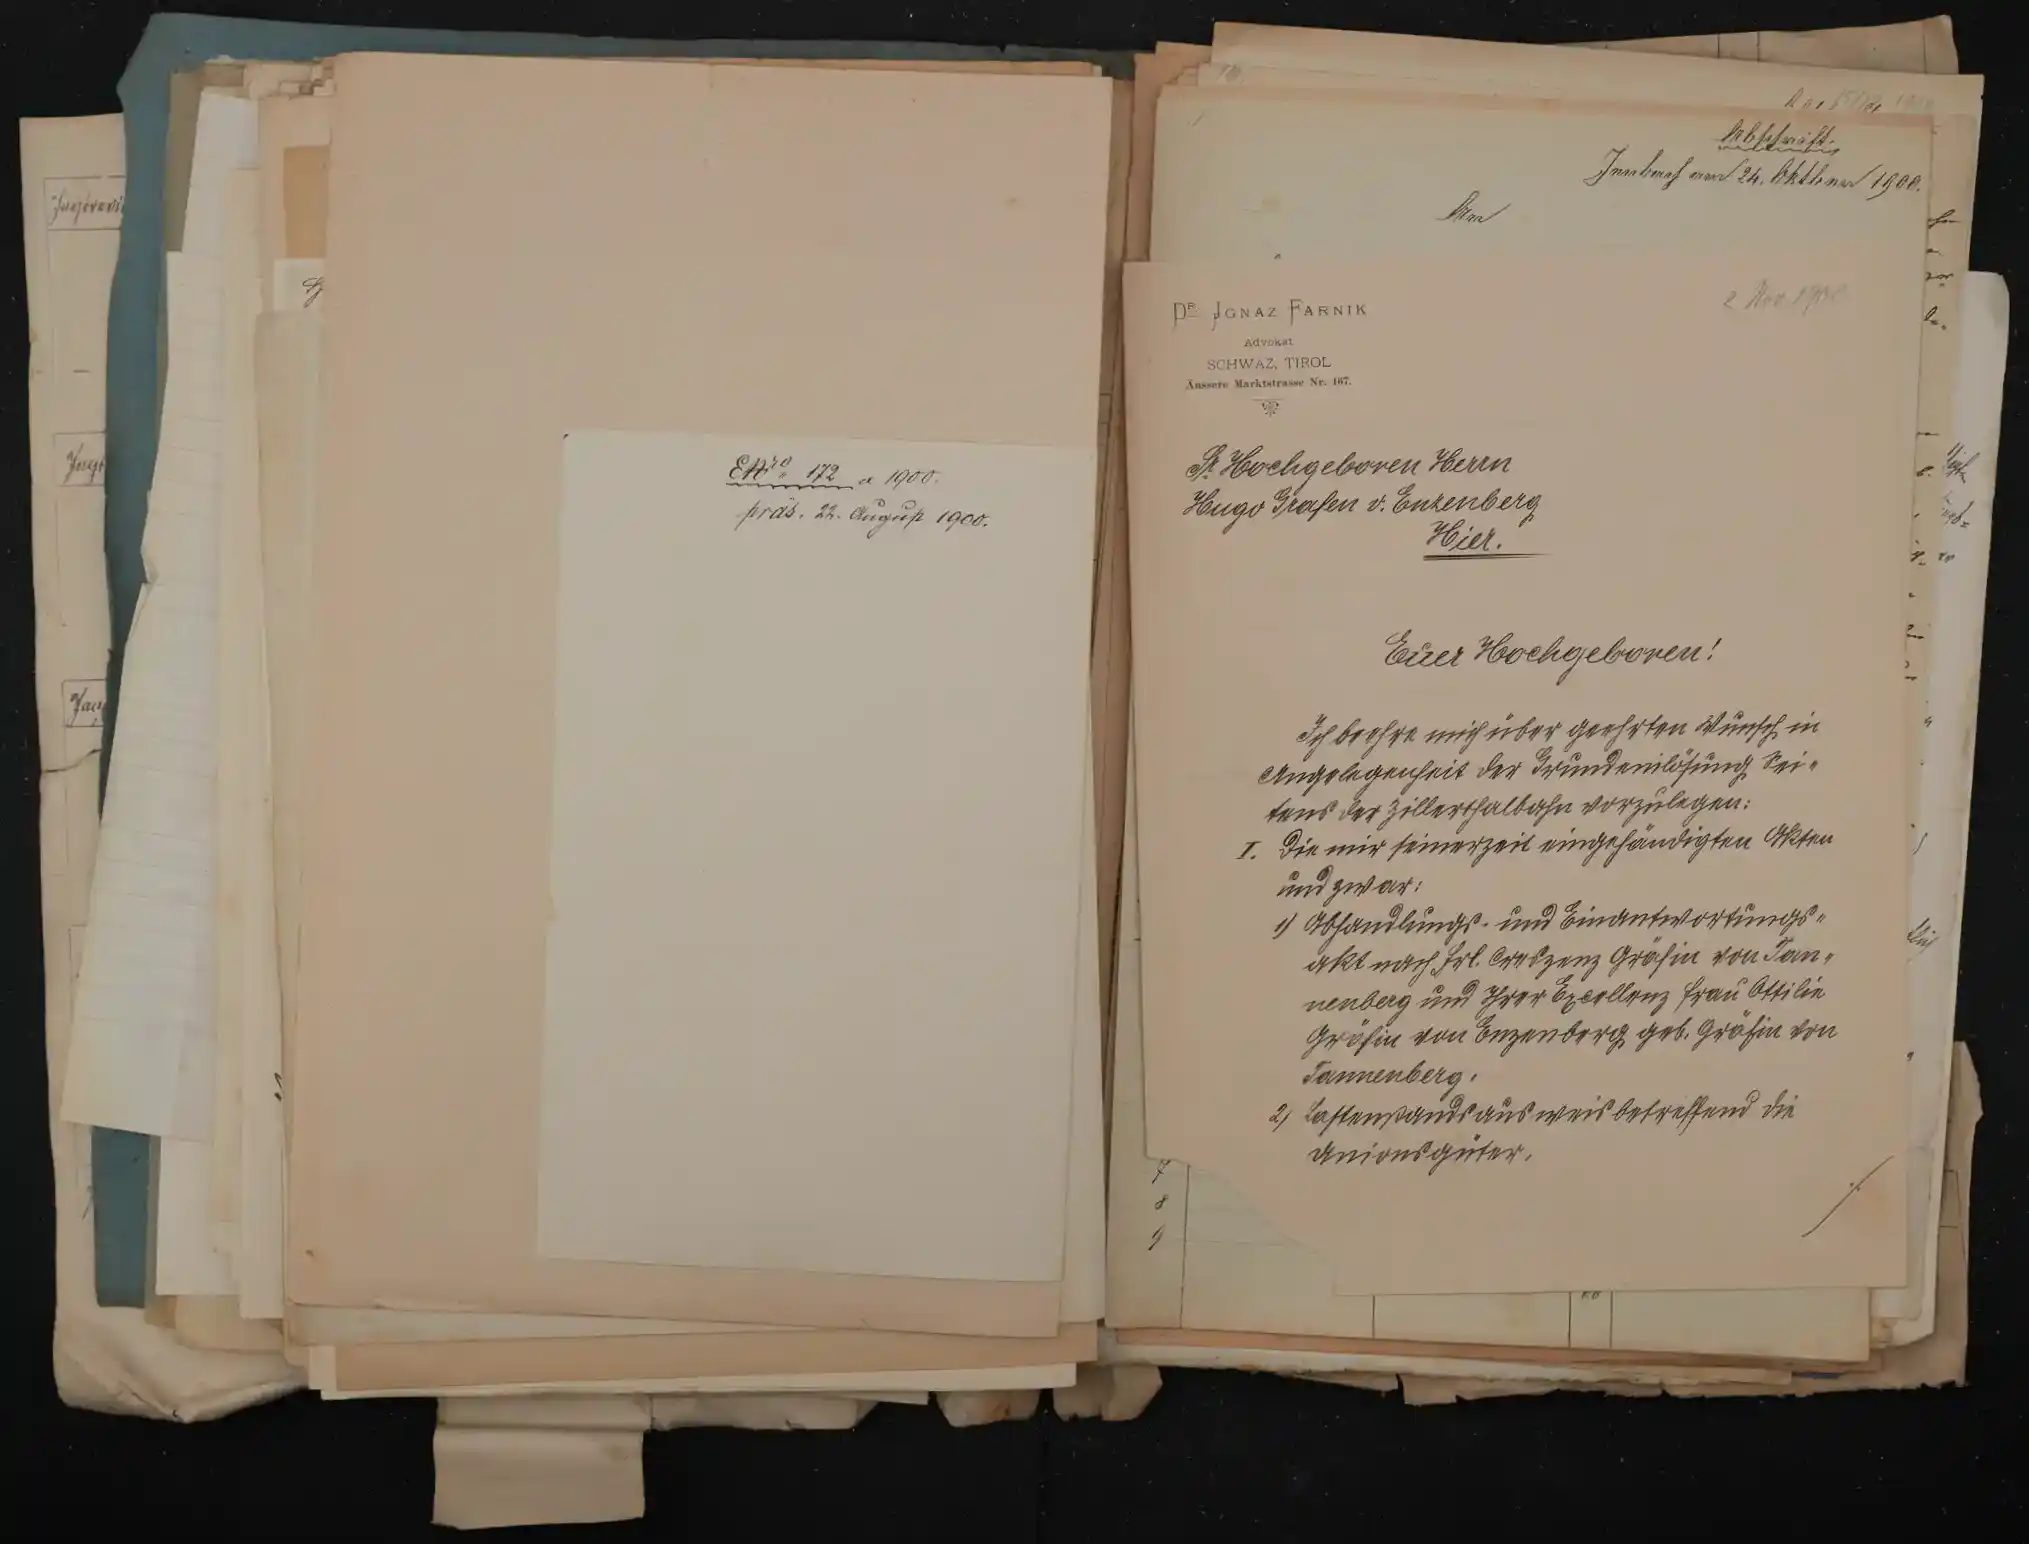 ENro 172 a 1900.
präs. 22. August 1900.
Abschrift.
Jenbach am 24. Oktober 1900.
An
2 Nov. 1900
Dr. IGNAZ FARNIK
Advokat
SCHWAZ, TIROL
Äussere Marktstrasse Nr. 167.
Sr. Hochgeboren Herrn
Hugo Grafen v. Enzenberg
Hier.
Euer Hochgeboren!
Ich beehre mich über geehrten Wunsch in
Angelegenheit der Grundeinlösung Sei-
tens der Zillerthalbahn vorzulegen:
I. Die mir seinerzeit eingehändigten Akten
und zwar:
1) Abhandlungs- und Einantwortungs-
akt nach Frl. Creszenz Gräfin von Tan-
nenberg und Ihrer Excellenz Frau Ottilie
Gräfin von Enzenberg geb. Gräfin von
Tannenberg.
2) Lastenstandsausweis betreffend die
Unionsgüter.
./.
7
8
9